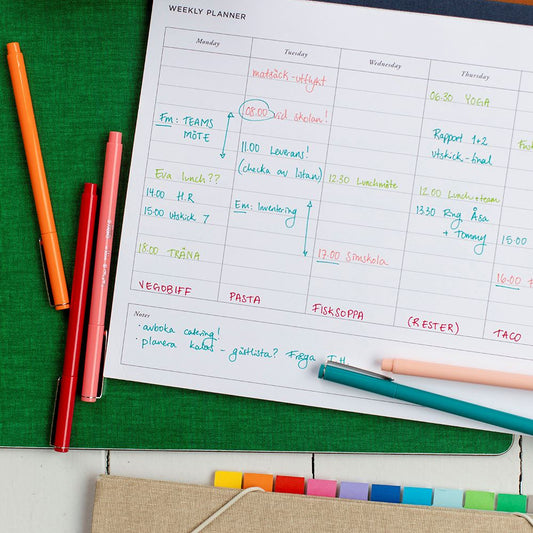 WEEKLY PLANNER
Monday
Fm: TEAMS
MÖTE
Eva lunch??
14.00 H.R
15.00 Utskick 7
18.00 TRÄNA
VEGOBIFF
Tuesday
matsäck-utflykt
08.00 vid skolan!
11.00 Leverans!
(checka av listan)
Em: Inventering
PASTA
Wednesday
12.30 Lunchmöte
17.00 Simskola
FISKSOPPA
Thursday
06.30 YOGA
Rapport 1+2
utskick-final
12.00 Lunch+team
13.30 Ring Åsa
+ Tommy
(RESTER)
15.00
16.00
TACO
Notes
· avboka catering!
· planera kalas - gästlista? Fråga T.H